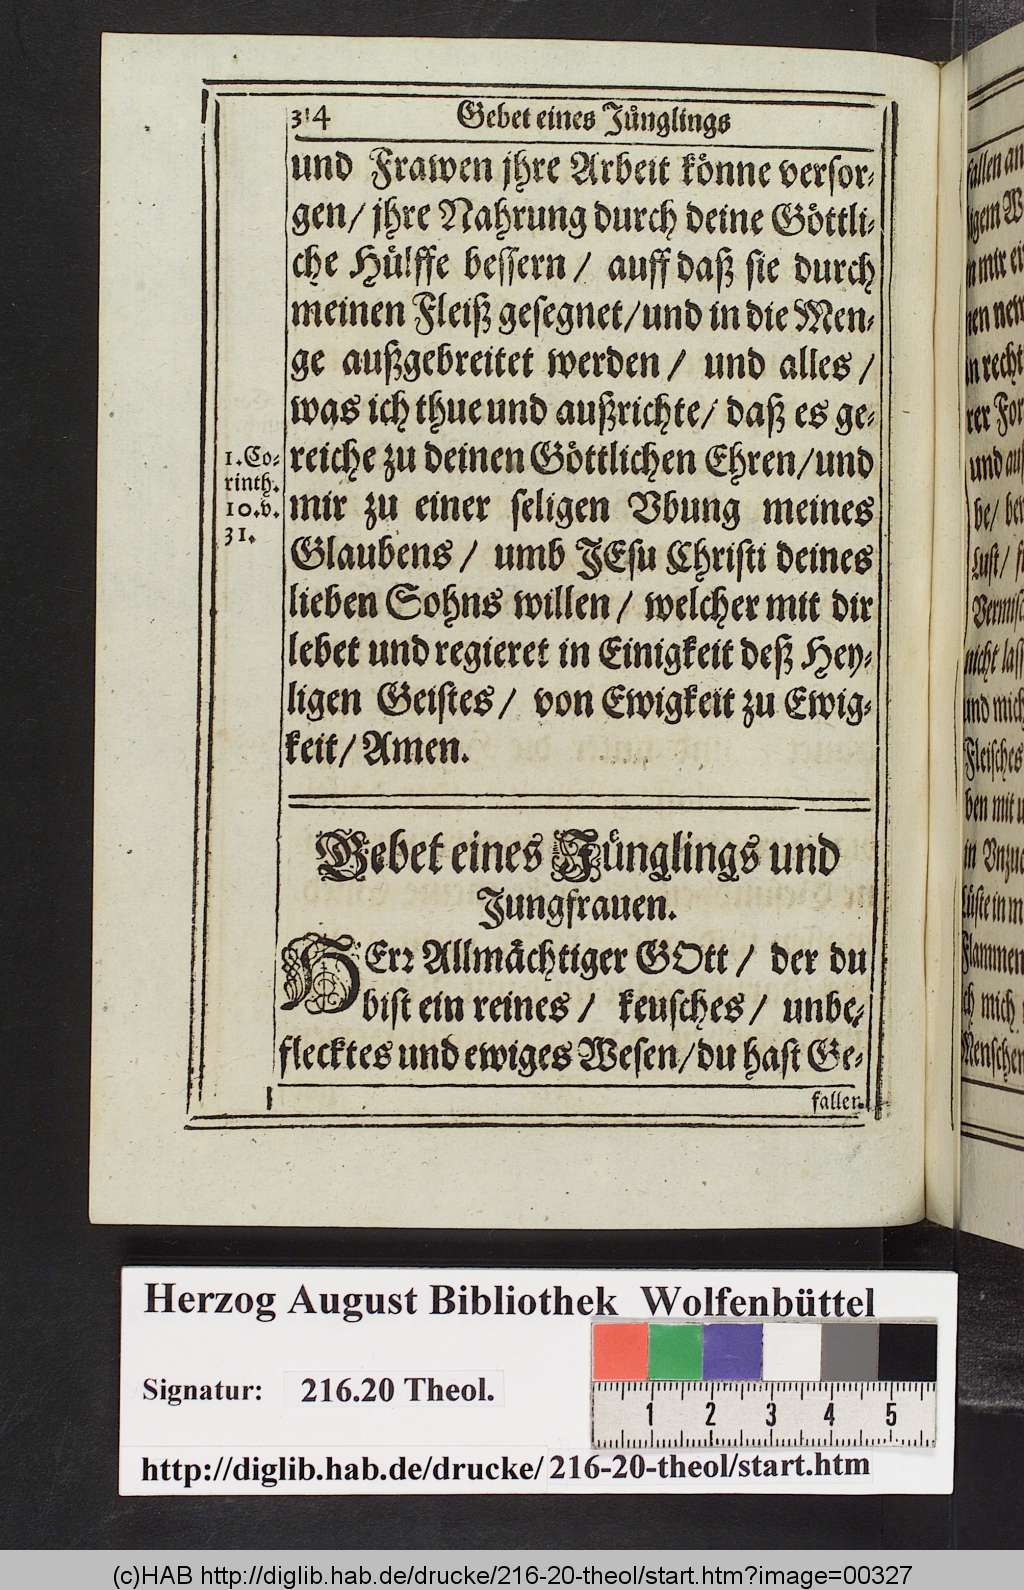 314 Gebet eines Jünglings
und Frawen jhre Arbeit könne versor-
gen/ jhre Nahrung durch deine Göttli-
che Hülffe bessern/ auff daß sie durch
meinen Fleiß gesegnet/und in die Men-
ge außgebreitet werden/ und alles/
was ich thue und außrichte/ daß es ge-
reiche zu deinen Göttlichen Ehren/und
mir zu einer seligen Vbung meines
Glaubens/ umb JEsu Christi deines
lieben Sohns willen/ welcher mit dir
lebet und regieret in Einigkeit deß Hey-
ligen Geistes/ von Ewigkeit zu Ewig-
keit/ Amen.
1. Co-
rinth.
10. v.
31.
Gebet eines Jünglings und
Jungfrauen.
HErr Allmächtiger GOtt/ der du
bist ein reines/ keusches/ unbe-
flecktes und ewiges Wesen/du hast Ge-
fallen
fallen an
mir ei
nen new
in recht
rer For
und auß
be/
Lust/
nicht lass
und mich
Fleisches
ben mit
in Vnzuc
Lüste in m
Flammen
ch mich
Menschen
Herzog August Bibliothek Wolfenbüttel
Signatur: 216.20 Theol.
1 2 3 4 5
http://diglib.hab.de/drucke/216-20-theol/start.htm
(c)HAB http://diglib.hab.de/drucke/216-20-theol/start.htm?image=00327